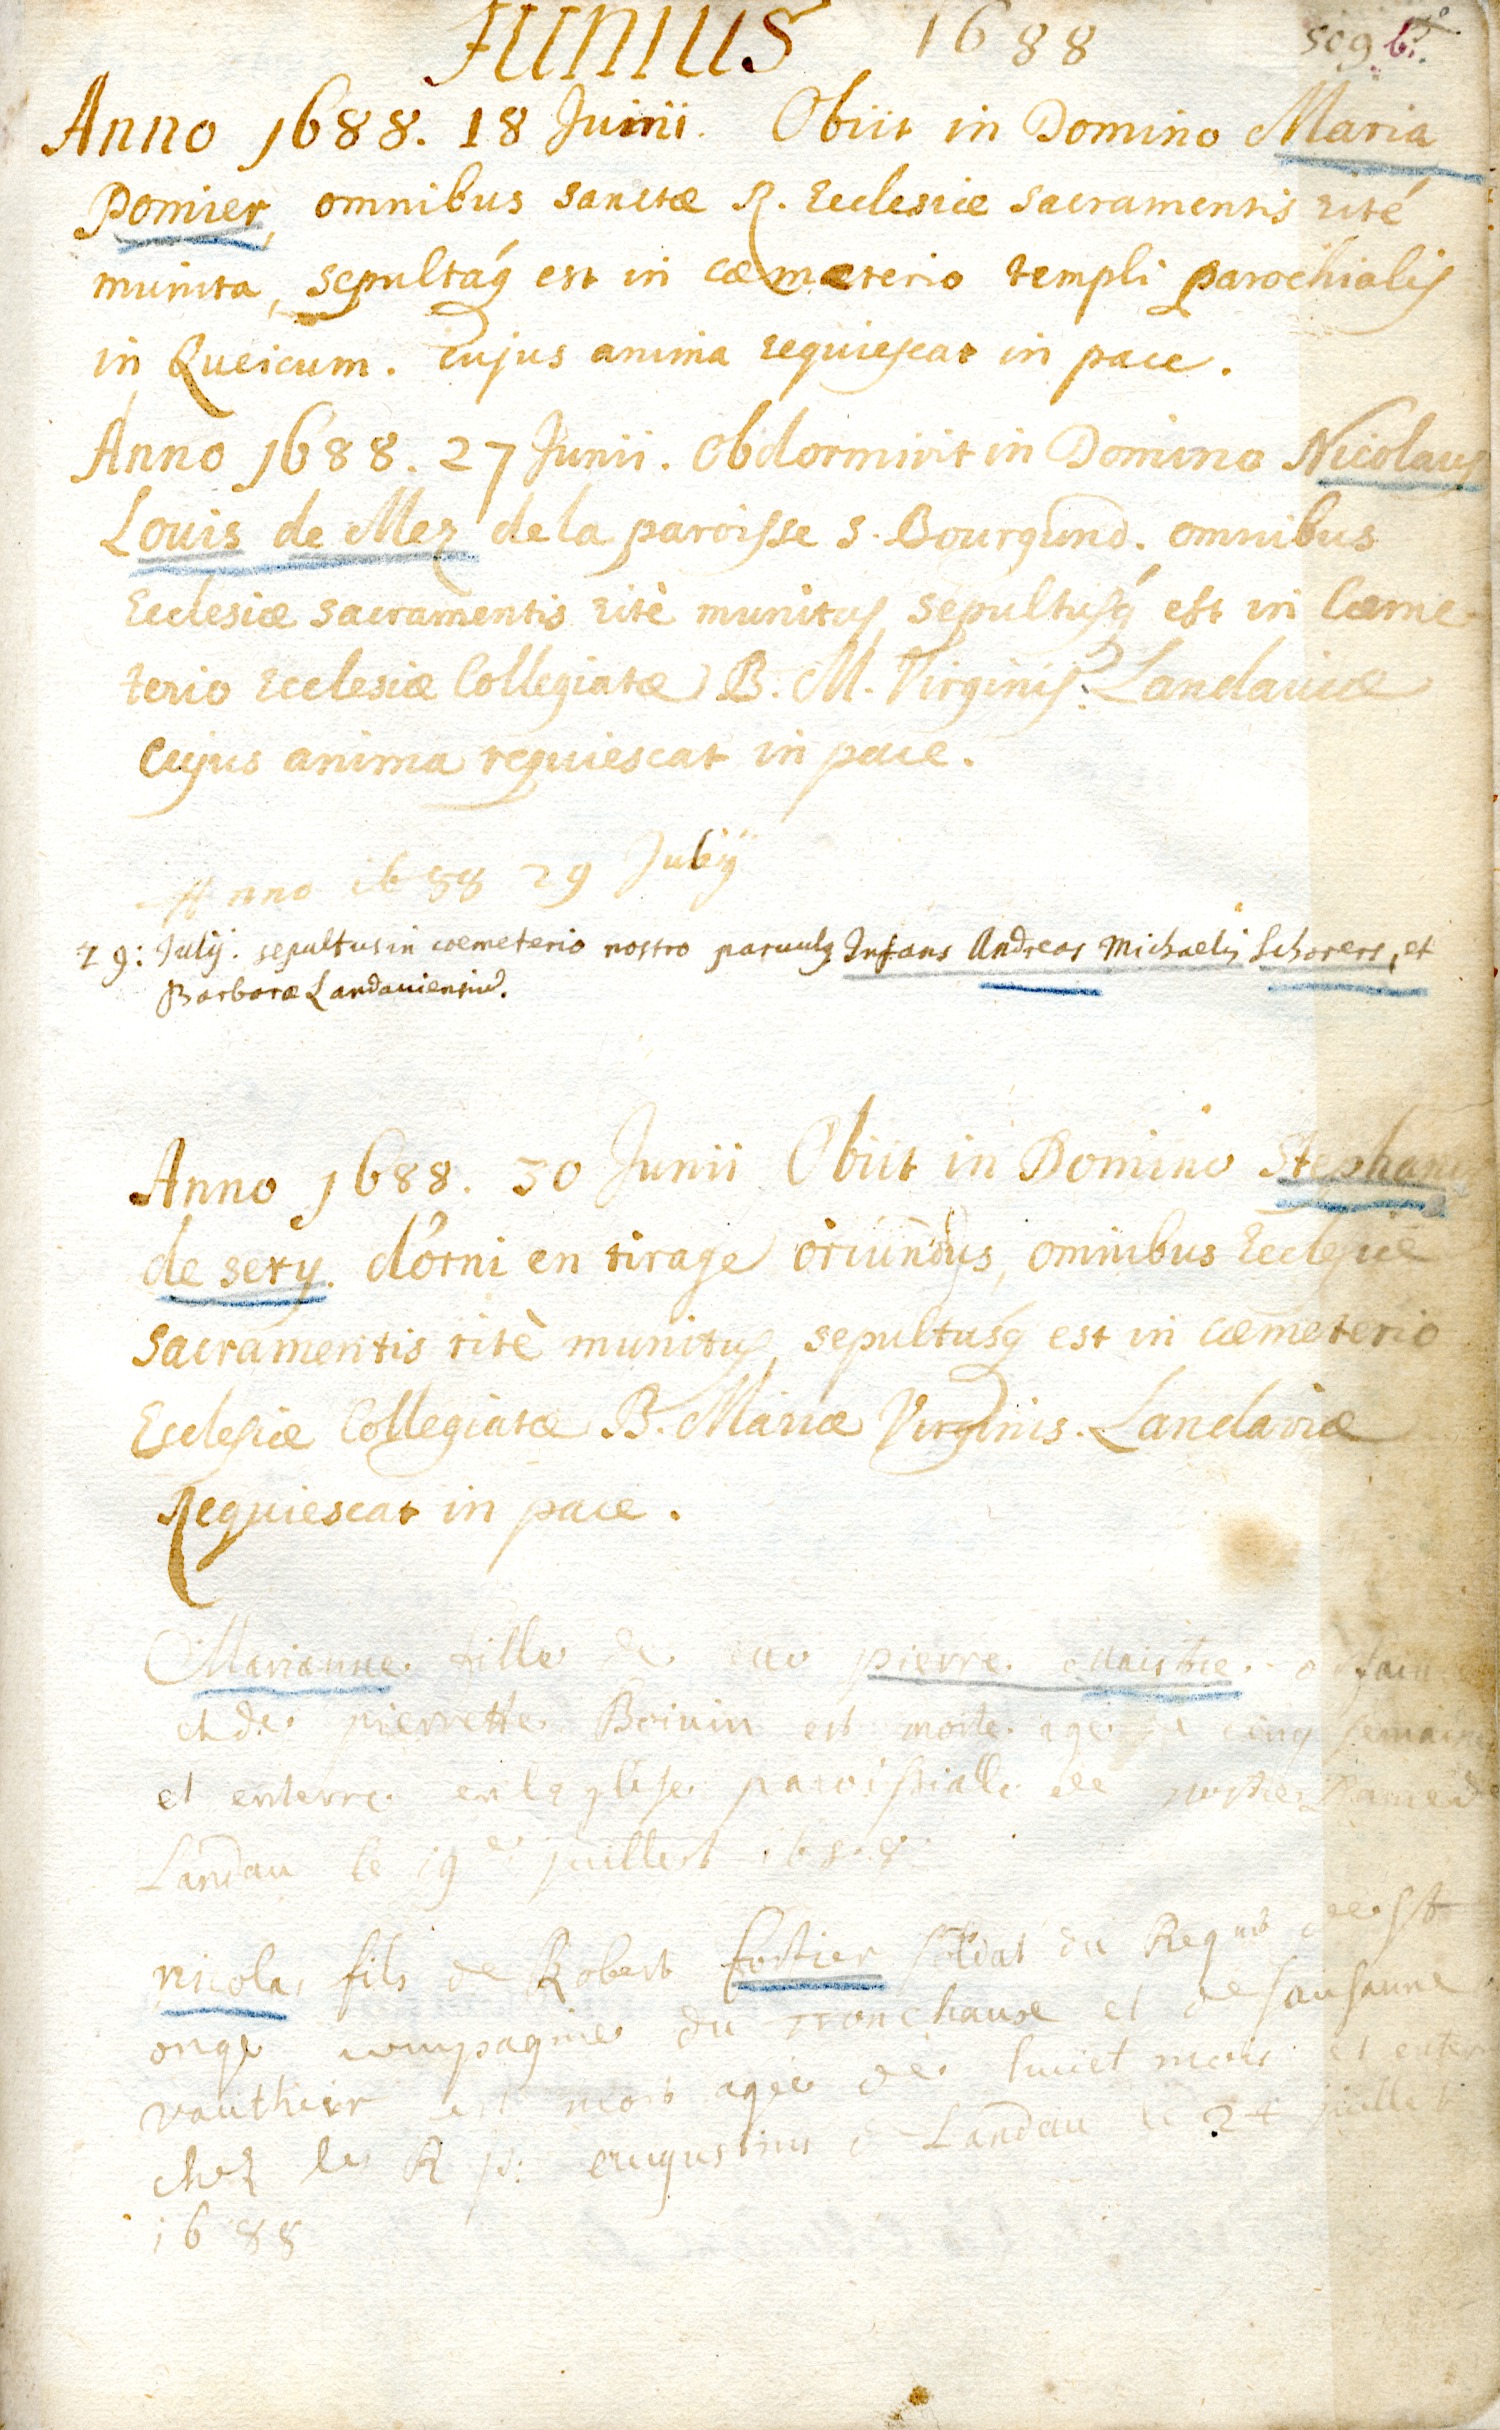 Junius 1688
Anno 1688. 18 Junii. Obiit in Domino Maria
Pomier, omnibus sanctæ R. Ecclesiæ sacramentis rité
munita, sepultáq est in cæmeterio templi parochialis
in Queicum. Cujus anima requiescat in pace.
Anno 1688. 27 Junii. Obdormivit in Domino Nicolaus
Louis de Mez de la paroisse S. Bourgund. omnibus
Ecclesiæ sacramentis ritè munitus, sepultusq́ est in Cæme-
terio Ecclesiæ Collegiatæ B. M. Virginis. Landaviæ
Cujus anima requiescat in pace.
Anno 1688 29 July
29: Julÿ. sepultus in coemeterio nostro parvulq Infans Andreas Michaelis Schorers, et
Barbaræ Landaviensiu.
Anno 1688. 30 Junii Obiit in Domino Stephan
de sery. d'orni en tirage oriundus, omnibus Ecclesiæ
sacramentis ritè munitus, sepultusq est in cæmeterio
Ecclesiæ Collegiatæ B. Mariæ Virginis. Landaviæ
Requiescat in pace.
Marianne fille de pierre
et de pierrette Boivin est morte age de cinq semaines
et enterre en leglise paroissialle de nostre Dame de
Landau le 19e juillet 1688
nicolas fils de Robert fortier soldat du Regmt de St
onge compagnie du et de
vauthier est mort agée de huict mois et enterre
chez les R p: augustins a Landau le 24 juillet
1688